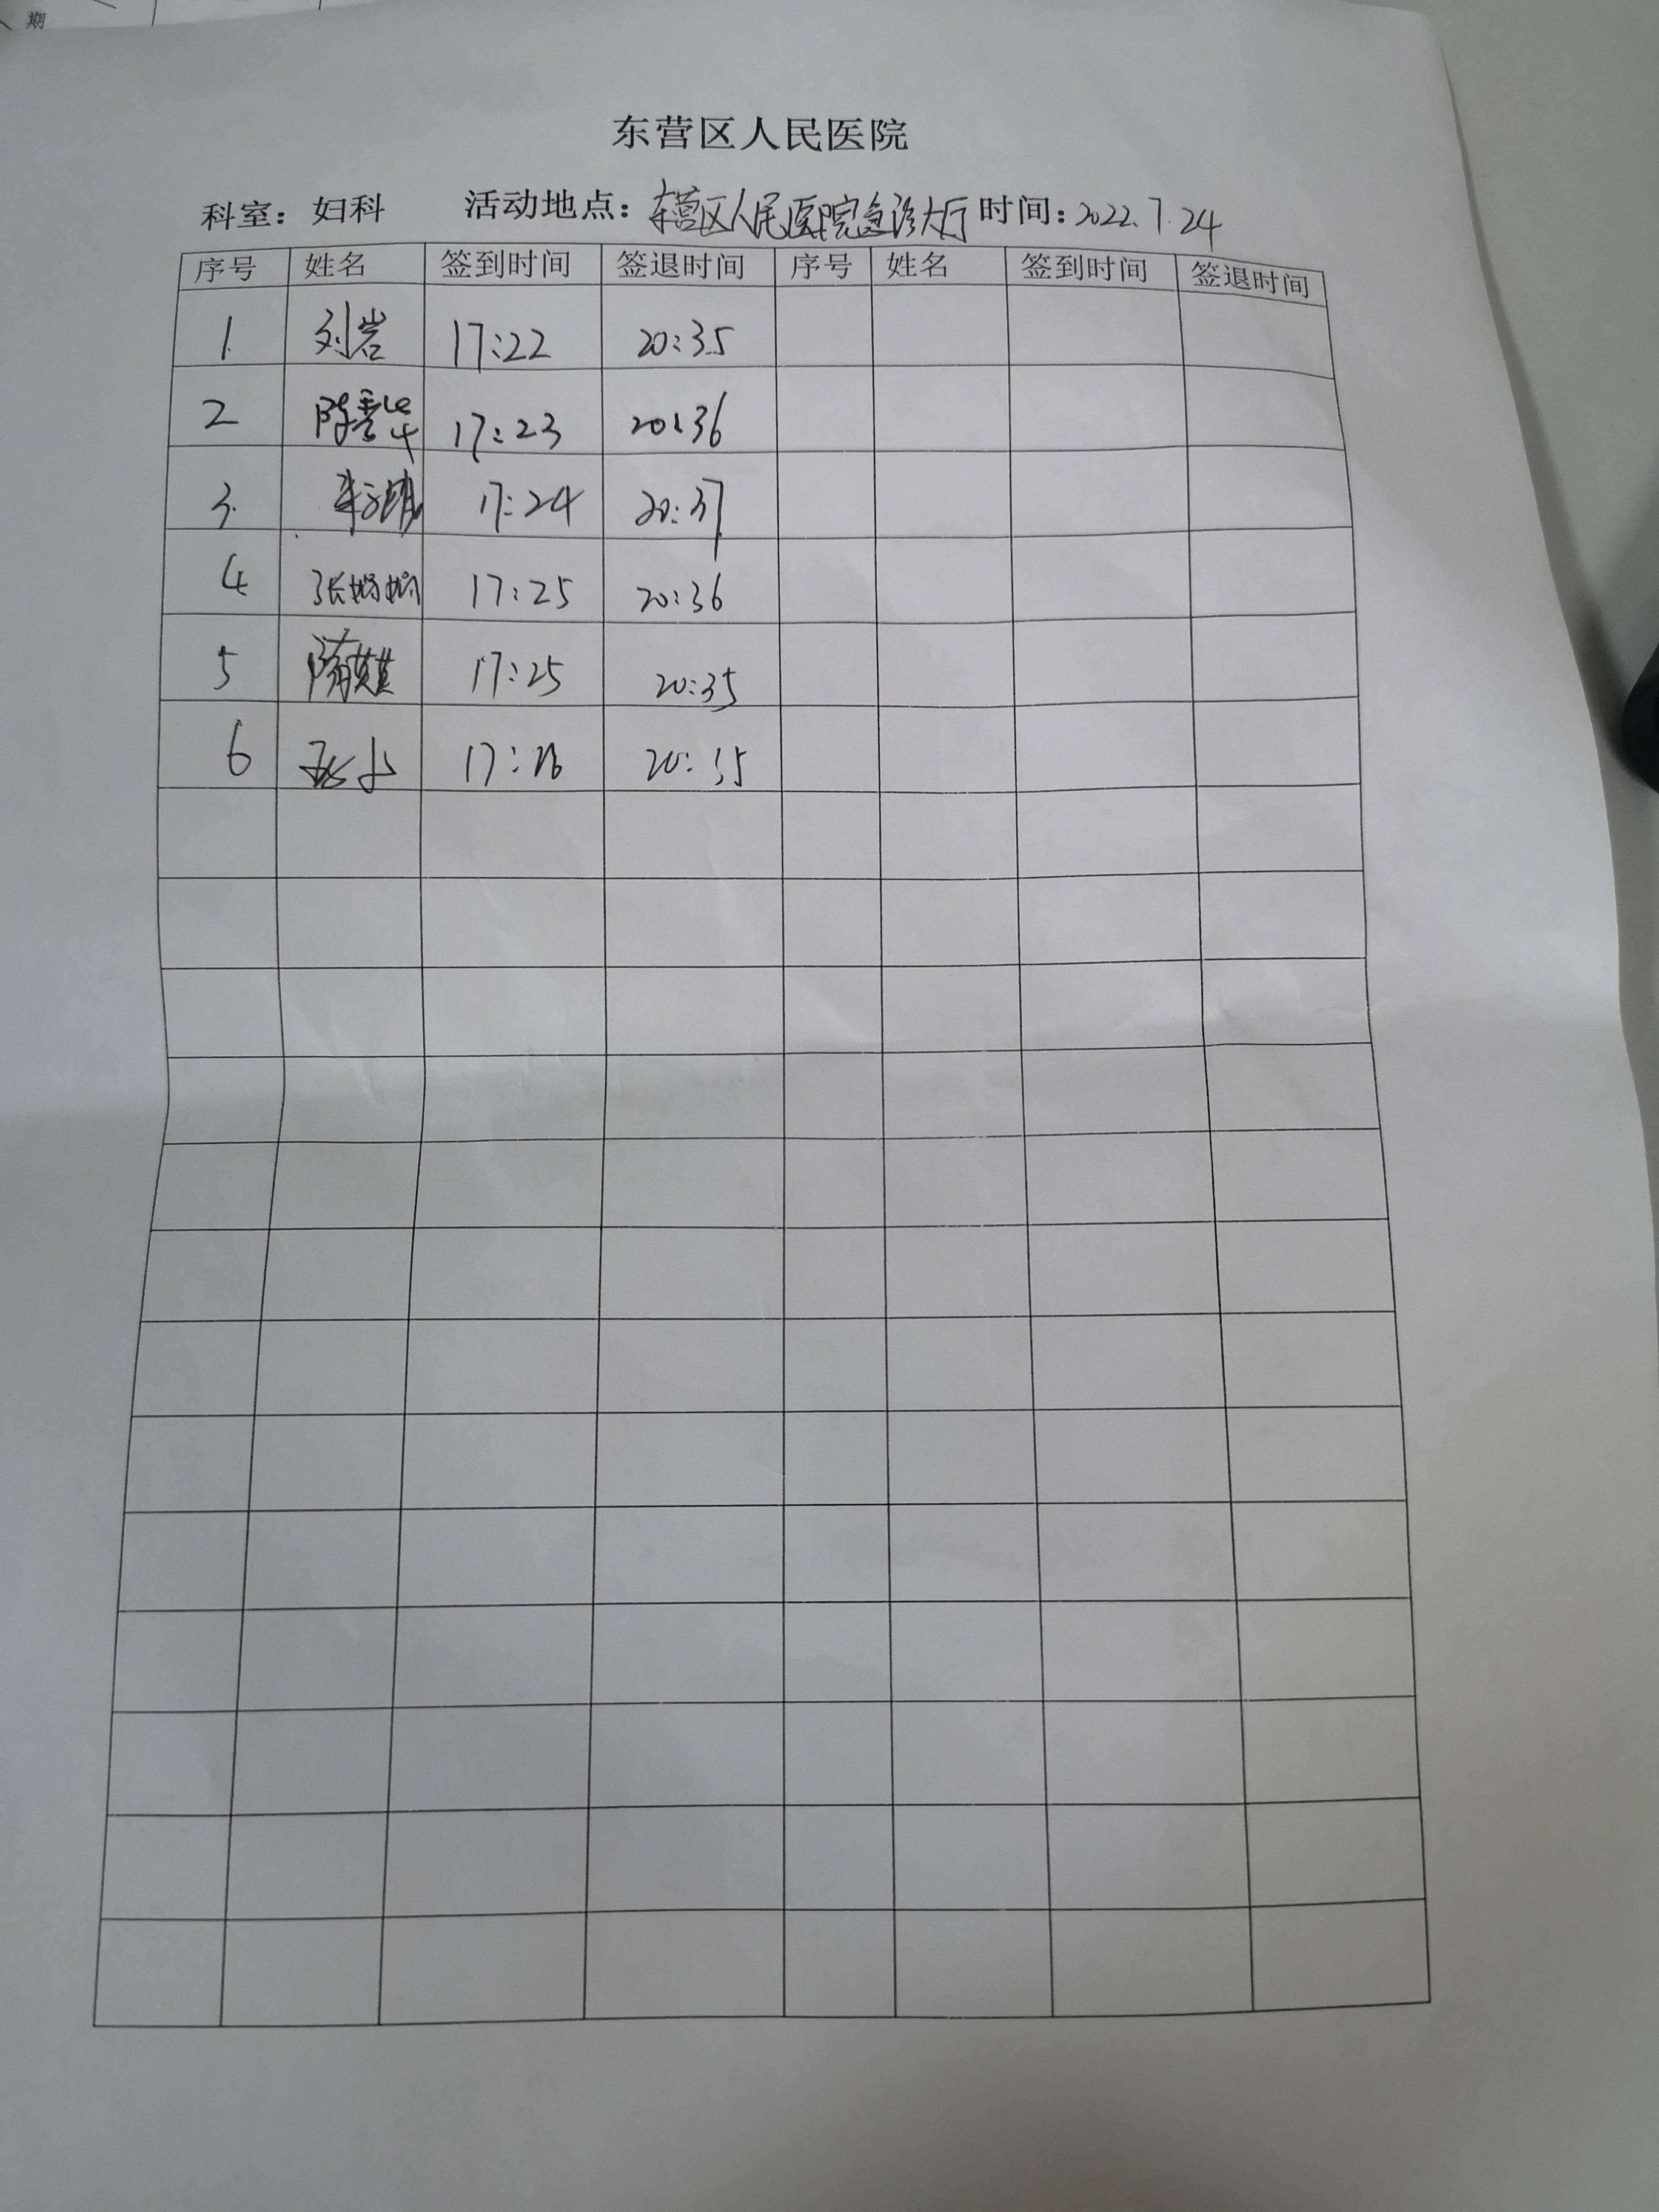 期
东营区人民医院
科室：妇科 活动地点：东营区人民医院急诊大厅 时间：2022.7.24
序号 姓名 签到时间 签退时间 序号 姓名 签到时间 签退时间
1 刘岩 17:22 20:35
2 陈 17:23 20:36
3 17:24 20:37
4 张娟娟 17:25 20:36
5 隋英英 17:25 20:35
6 17:26 20:35